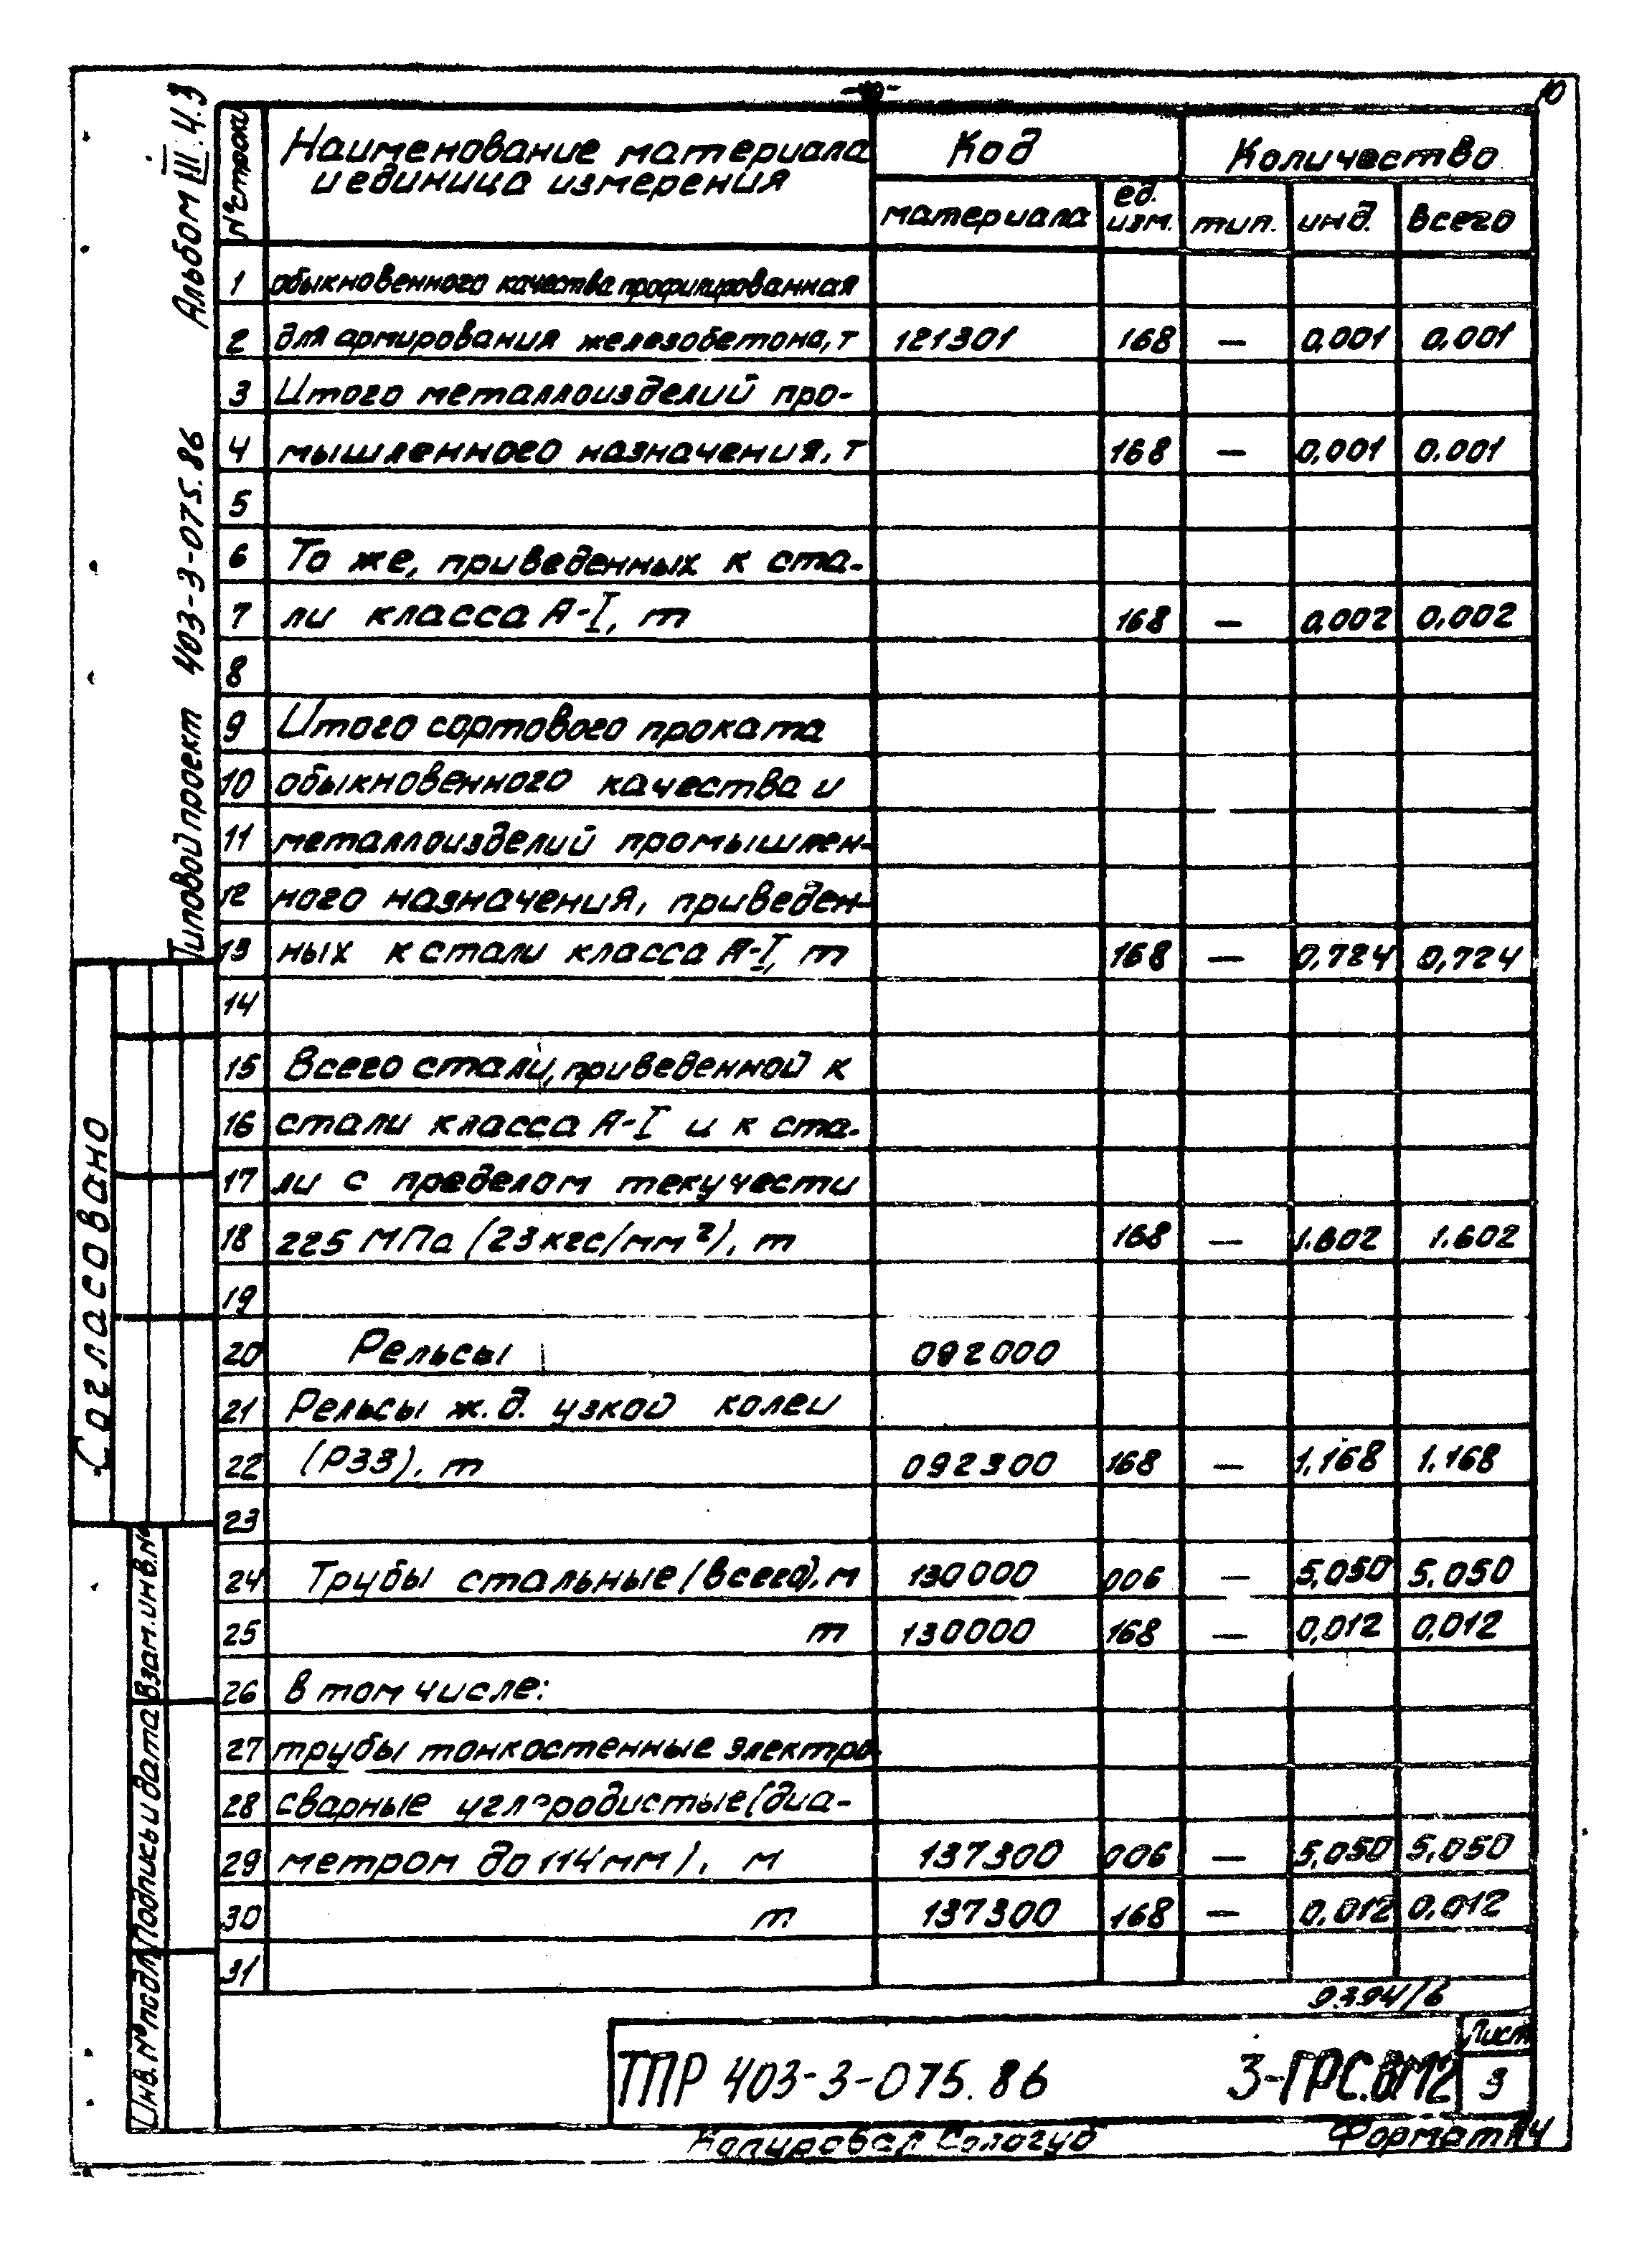 10
Альбом III.4.3
Типовой проект 403-3-075.86
№ строки | Наименование материала и единица измерения | Код | Количество
материала | ед. изм. | тип. | инд. | всего
1 обыкновенного качества профилированная
2 для армирования железобетона, т 121301 168 — 0,001 0,001
3 Итого металлоизделий про-
4 мышленного назначения, т 168 — 0,001 0.001
5
6 То же, приведенных к ста-
7 ли класса А-I, т 168 — 0,002 0,002
8
9 Итого сортового проката
10 обыкновенного качества и
11 металлоизделий промышлен-
12 ного назначения, приведен-
13 ных к стали класса А-I, т 168 — 0,724 0,724
14
15 Всего стали, приведенной к
16 стали класса А-I и к ста-
17 ли с пределом текучести
18 225 МПа (23 кгс/мм²), т 168 — 1.602 1.602
19
20 Рельсы 092000
21 Рельсы ж.д. узкой колеи
22 (Р33), т 092300 168 — 1,168 1.168
23
24 Трубы стальные (всего), м 130000 006 — 5,050 5.050
25 т 130000 168 — 0,012 0,012
26 в том числе:
27 трубы тонкостенные электро-
28 сварные углеродистые (диа-
29 метром до 114 мм), м 137300 006 — 5,050 5,050
30 т 137300 168 — 0,012 0,012
31
Согласовано
Взам. инв. №
Подпись и дата
Инв. № подл.
9394/6
ТПР 403-3-075.86 3-ГРС.ВМ2
Лист
3
Копировал Сологуб Формат А4